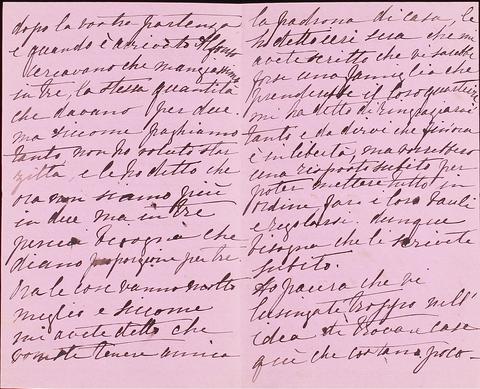 dopo la vostra partenza
e quando è arrivato Alfonso
cercavano che mangiassimo
in tre, la stessa quantità
che davano per due
ma siccome paghiamo
tanto non ho voluto star
zitta, e le ho detto che
ora non siamo più
in due ma in tre
bisogna che
diano porzione per tre
Ora le cose vanno molto
meglio e siccome
mi avete detto che
volete tenere
la padrona di casa, le
ho detto ieri sera che mi
avete scritto che vi sarebbe
forse una famiglia che
prenderebbe il loro quartiere
mi ha detto di ringraziarvi
tanto e da dirvi che finora
è in libertà, ma vorrebbero
una risposta subito per
poter mettere tutto in
ordine
e regolarsi. dunque
bisogna che le scriviate
subito.
Ho paura che vi
lusingate troppo nell'
idea di trovare case
qui che costano poco-